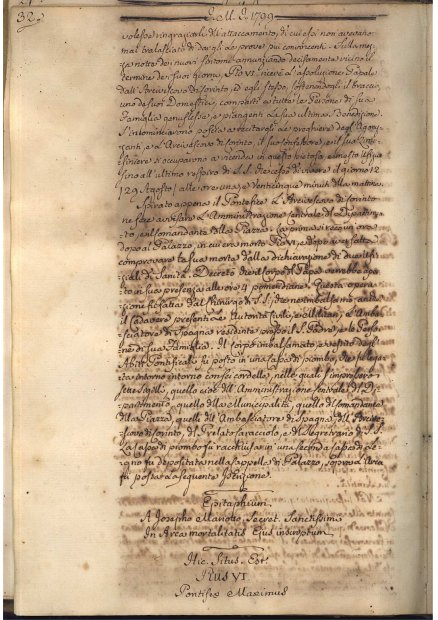 32. E. M. E. 1799
volesse ringraziarli dell'attaccamento, di cui essi non avevano
mai tralasciati di dargli le prove più convincenti. Sulla mez-
za notte dei nuovi sintomi annunziando decisamente vicino il
termine de' suoi giorni, Pio VI ricevè l'assoluzione Papale
dall'Arcivescovo di Corinto, ed egli stesso, sostenendogli il braccio
uno de' suoi Domestici, compartì a tutte le Persone di sua
Famiglia genuflesse, e piangenti la sua ultima Benedizione.
S'incominciarono poscia a recitargli le preghiere degli Agoniz-
zanti, e l'Arcivescovo di Corinto, il suo Confessore, ed il suo
si occuparono a vicenda in questo pietoso, e mesto
sino all'ultimo respiro di S. S. che cessò di vivere il giorno
29 Agosto alle ore una, e venticinque minuti della mattina.
Spirato appena il Pontefice l'Arcivescovo di Corinto
ne fece avvisare l'Amministrazione centrale del Dipartimen-
to, ed il Comandante della Piazza. La prima si recò un'ora
dopo al Palazzo, in cui era morto Pio VI, e dopo aver fatta
comprovare la sua morte dalla dichiarazione di due Offi-
ciali di Sanità. Decretò che il corpo del Papa verrebbe aper-
to in sua presenza alle ore 4 pomeridiane. Questa opera-
zione fu fatta dal Chirurgo di S. S., che ne imbalsamò anche
il cadavere presenti le Autorità civili, e Militari, l'Amba-
sciatore di Spagna residente presso il S. Padre, e le Perso-
ne di sua Famiglia. Il corpo imbalsamato, e vestito degli
Abiti Pontificali fu posto in una cassa di piombo, che fu lega-
ta intorno intorno con sei cordelle, nelle quali s'impressero
sette sigilli, quello cioè dell'Amministrazione centrale del Di-
partimento, quello della Municipalità, quello del Comandante
della Piazza, quello dell'Ambasciatore di Spagna, dell'Arcive-
scovo di Corinto, del Prelato Caracciolo, e del Segretario di S. S.
La cassa di piombo fu racchiusa in una seconda cassa di le-
gno fu depositata nella Cappella di Palazzo, e sopra l'Arca
fu posta la seguente Iscrizione.
Epitaphium.
A Josepho Marotto Secret. Sanctissimi
In Arca mortalitatis Ejus inscriptum.
Hic. Situs. Est.
Pius VI
Pontifex Maximus